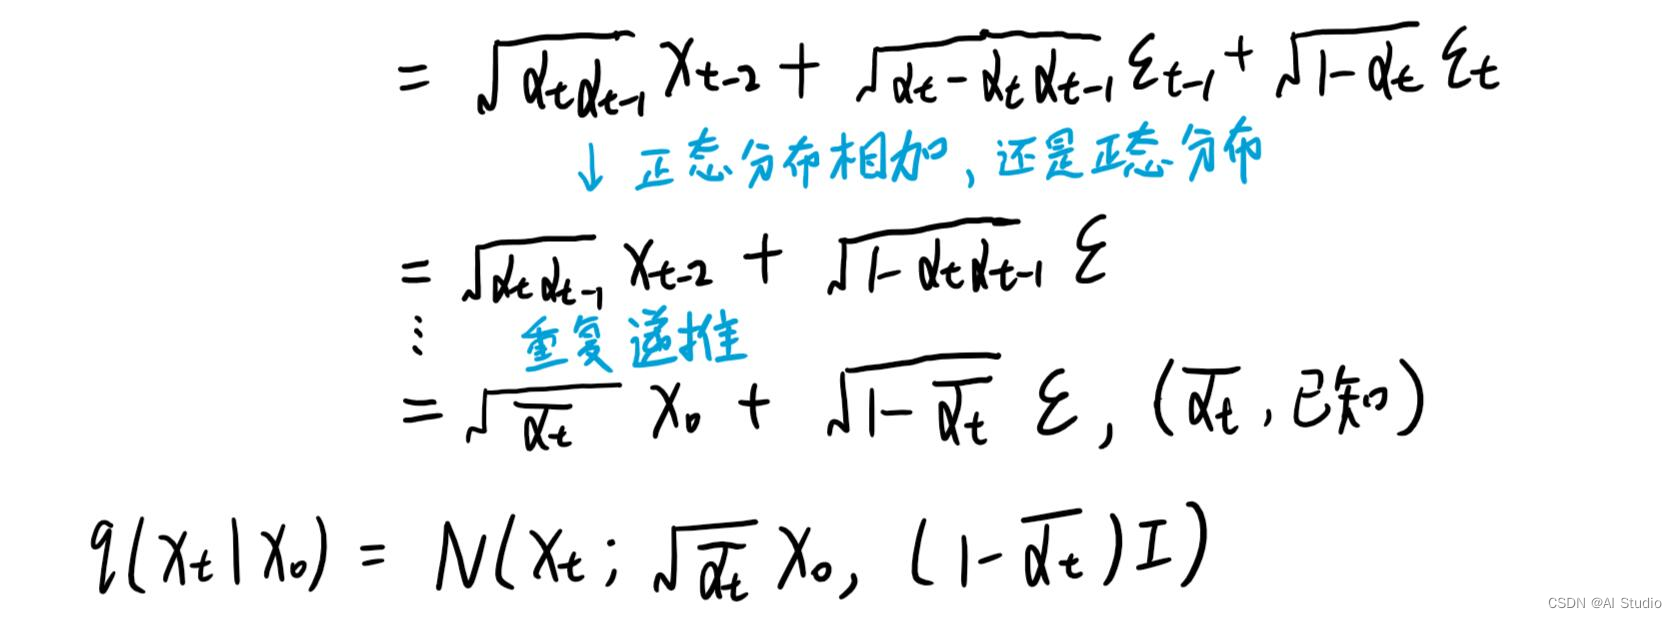 = √(αₜαₜ₋₁) Xₜ₋₂ + √(αₜ - αₜαₜ₋₁) εₜ₋₁ + √(1-αₜ) εₜ
↓ 正态分布相加，还是正态分布
= √(αₜαₜ₋₁) Xₜ₋₂ + √(1-αₜαₜ₋₁) ε
⋮ 重复递推
= √(ᾱₜ) X₀ + √(1-ᾱₜ) ε, (ᾱₜ, 已知)
q(Xₜ|X₀) = N(Xₜ; √(ᾱₜ) X₀, (1-ᾱₜ)I)
CSDN @AI Studio